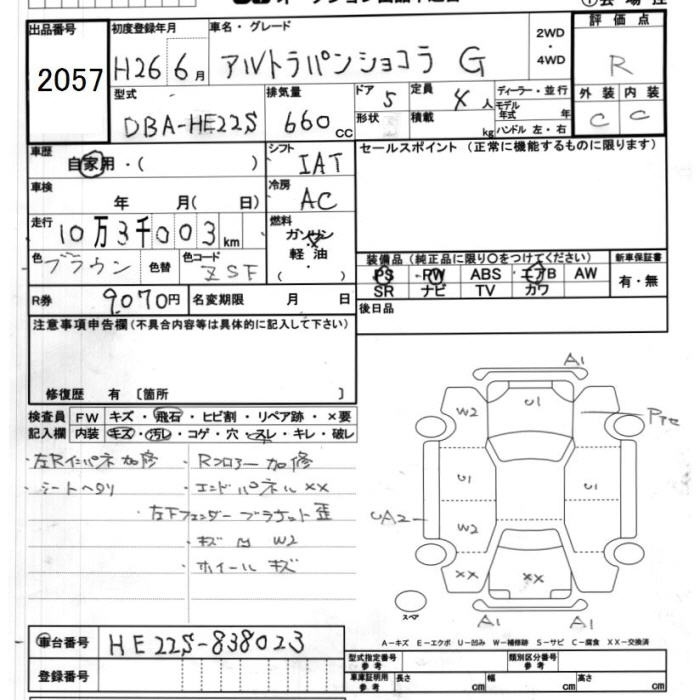 出品番号 初度登録年月 車名・グレード 2WD・4WD 評価点
2057 H26 6月 アルトラパンショコラ G R
型式 排気量 ドア 定員 ディーラー・並行 外装 内装
DBA-HE22S 660cc 5 4人 モデル年式 年 C C
形状 積載 kg ハンドル 左・右
車歴 シフト セールスポイント (正常に機能するものに限ります)
自家用・( ) IAT
車検 冷房
年 月( 日) AC
走行 燃料
10万3千003km ガソリン
軽油
色 色替 色コード ( ・ )
ブラウン ZSF
装備品 (純正品に限り○をつけてください) 新車保証書
PS PW ABS エアB AW 有・無
SR ナビ TV カワ
R券 9070円 名変期限 月 日 後日品
注意事項申告欄(不具合内容等は具体的に記入して下さい)
修復歴 有 〔箇所 〕
検査員 FW キズ・飛石・ヒビ割・リペア跡・×要
記入欄 内装 キズ・汚レ・コゲ・穴・スレ・キレ・破レ
・左Rインパネ加修 ・Rフロアー加修
・シートヘタリ ・エンドパネルXX
・左Fフェンダーブラケット歪
・キズ W2
・ホイールキズ
A1
W2 U1
U1 U1
UA2 W2
XX XX
スペア A1 A1
A-キズ E-エクボ U-凹み W-補修跡 S-サビ C-腐食 XX-交換済
車台番号 HE22S-838023
登録番号
型式指定番号 参考 類別区分番号 参考
車庫証明用 参考 長さ cm 幅 cm 高さ cm